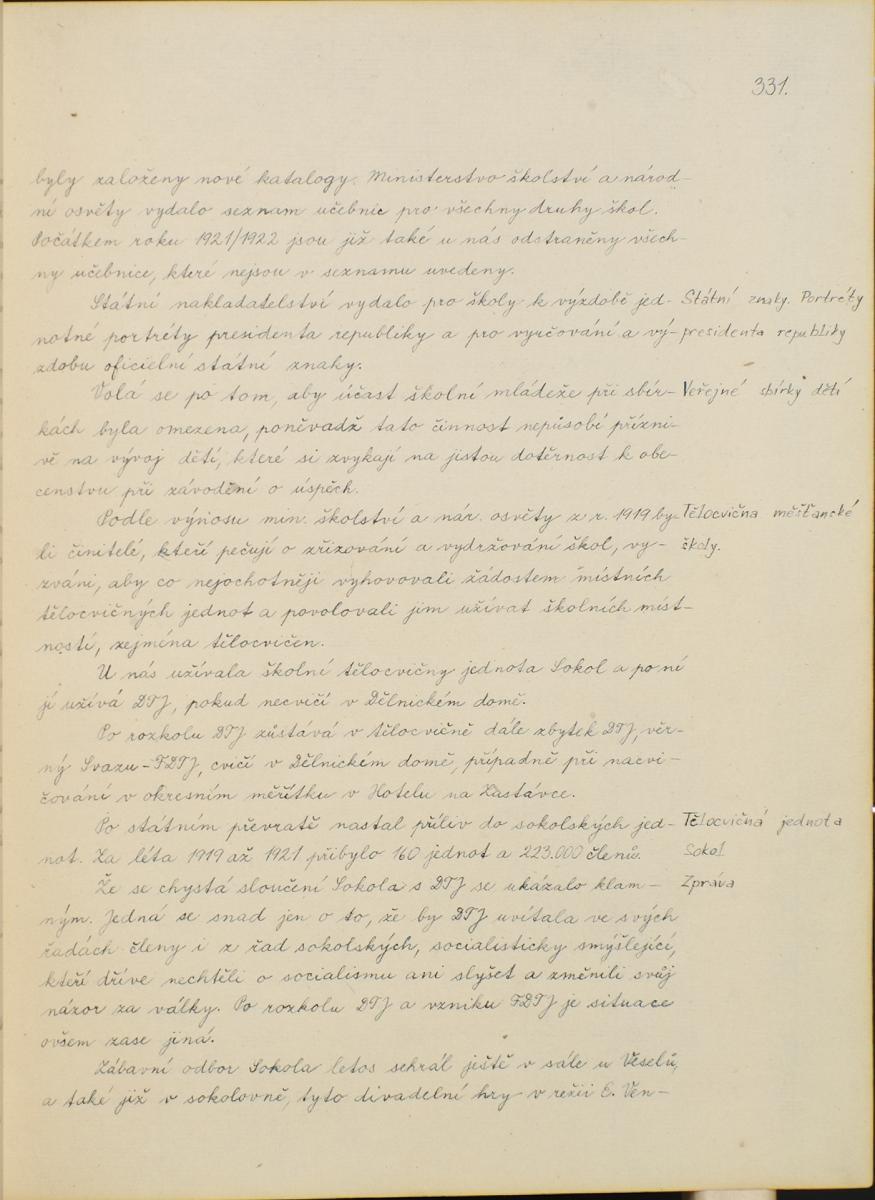 331.
byly založeny nové katalogy. Ministerstvo školství a národ-
ní osvěty vydalo seznam učebnic pro všechny druhy škol.
Počátkem roku 1921/1922 jsou již také u nás odstraněny všech-
ny učebnice, které nejsou v seznamu uvedeny.
Státní nakladatelství vydalo pro školy k výzdobě jed- Státní znaky. Portréty
notné portréty presidenta republiky a pro vyučování a vý- presidenta republiky
zdobu oficielní státní znaky.
Volá se po tom, aby účast školní mládeže při sbír- Veřejné sbírky dětí
kách byla omezena, poněvadž tato činnost nepůsobí přízni-
vě na vývoj dětí, které si zvykají na jistou dotěrnost k obe-
censtvu při závodění o úspěch.
Podle výnosu min. školství a nár. osvěty z r. 1919 by- Tělocvična měšťanské
li činitelé, kteří pečují o zřizování a vydržování škol, vy- školy.
zváni, aby co nejochotněji vyhovovali žádostem místních
tělocvičných jednot a povolovali jim užívat školních míst-
ností, zejména tělocvičen.
U nás užívala školní tělocvičny jednota Sokol a po ní
jí užívá DTJ, pokud necvičí v Dělnickém domě.
Po rozkolu DTJ zůstává v tělocvičně dále zbytek DTJ, věr-
ný Svazu - FDTJ, cvičí v Dělnickém domě, případně při nacvi-
čování v okresním měřítku v Hotelu na Zástavce.
Po státním převratě nastal příliv do sokolských jed- Tělocvičná jednota
not. Za léta 1919 až 1921 přibylo 160 jednot a 223.000 členů. Sokol
Že se chystá sloučení Sokola s DTJ se ukázalo klam- Zpráva
ným. Jedná se snad jen o to, že by DTJ uvítala ve svých
řadách členy i z řad sokolských, socialisticky smýšlející,
kteří dříve nechtěli o socialismu ani slyšet a změnili svůj
názor za války. Po rozkolu DTJ a vzniku FDTJ je situace
ovšem zase jiná.
Zábavní odbor Sokola letos sehrál ještě v sále u Veselů,
a také již v sokolovně, tyto divadelní hry v režii E. Ven-